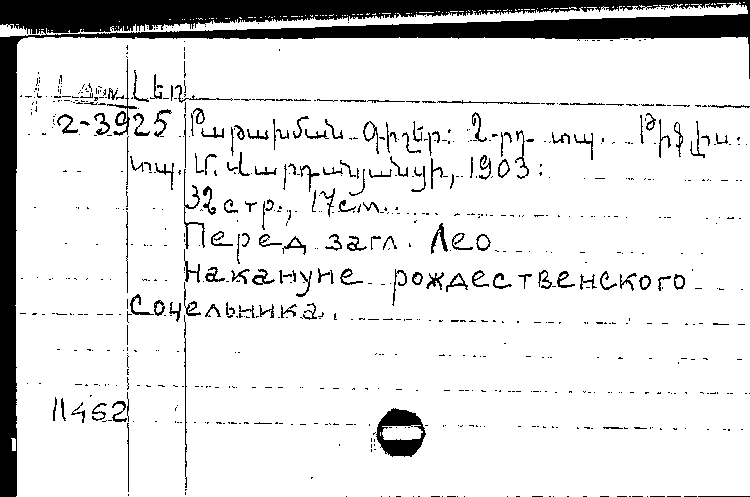 1 Арм. Լեո.
2-3925 Բաթախման գիշեր: 2-րդ տպ. Թիֆլիս.
տպ. Մ. Վարդանյանցի, 1903:
32 стр., 17см.
Перед загл. Лео
накануне рождественского
сочельника.
11462